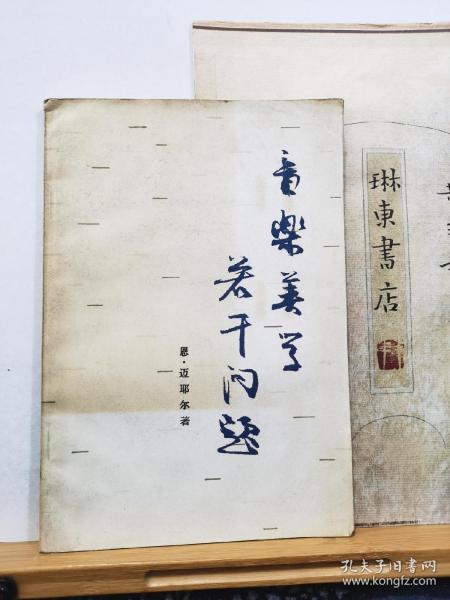 音樂美学
若干问题
恩·迈耶尔著
琳東書店
孔夫子旧书网
www.kongfz.com